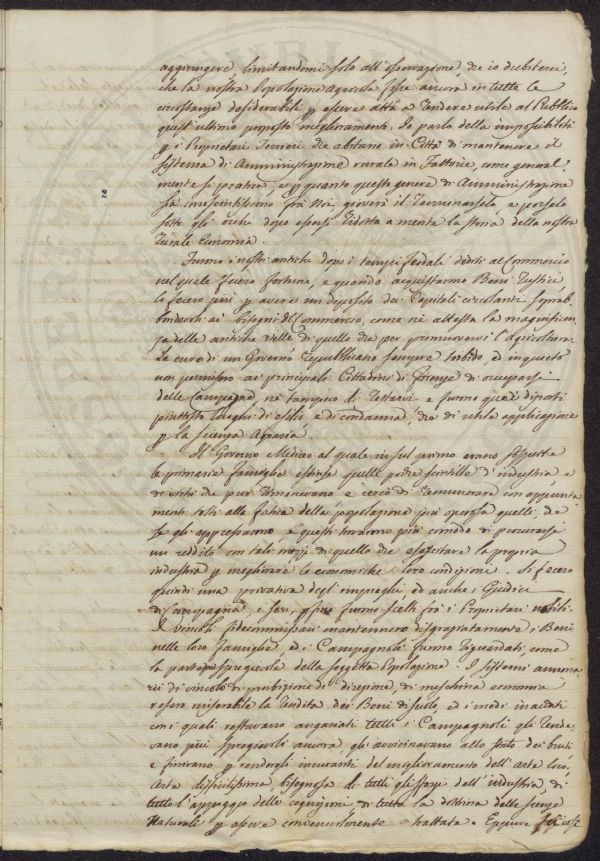 aggiungere limitandomi solo all' osservazione, che io dubitarei,
che la nostra Popolazione Agricola sia ancora in tutte le
circostanze desiderabili p essere atta a rendere utile al Pubblico
quest' ultimo proposto miglioramento. Io parlo della impossibilità
p i Proprietari Terrieri che abitano in Città di mantenere il
sistema di Amministrazione rurale in Fattorie, come general
mente si pratica, e p quanto questo genere di Amministrazione
sia fra Noi, gioverà il rammentarselo, e porselo
sotto gli occhi dopo essersi ridotta a mente la storia della nostra
rurale Economia.
Furono i nostri antichi dopo i tempi feudali dediti al Commercio
nel quale fecero fortune, e quando acquistarono Beni rustici,
lo fecero più p avere un deposito dei Capitali circolanti soprab
bondevoli ai bisogni del Commercio, come ne attesta la magnificen
za delle antiche ville di quello che per promuovervi l'agricoltura
le cure di un Governo repubblicano sempre torbido, ed inquieto
non permisero ai principali Cittadini di Firenze di occuparsi
delle Campagne, nè tampoco di restarvi e furono quei diporti
piuttosto luoghi di esilio e di condanna, che di utile applicazione
p la scienza Agraria.
Il Governo Mediceo al quale in sul primo erano sospette
le primarie famiglie estinse quelle poche scintille d' industria e
di virtù che pur rimanevano e cercò di remunerare con appunta
menti tolti alla fatica della popolazione più operosa quelli che
se gli appressarono e questi trovarono più comodo di procurarsi
un reddito con tali mezzi di quello che esercitare la propria
industria p migliorare le economiche loro condizioni. Si fecero
quindi una privativa degl' impieghi, ed anche i Giudici
di Campagna, i furono scelti fra i Proprietari nobili.
I vincoli fidecommissari mantennero disgraziatamente i Beni
nelle loro famiglie, ed i Campagnoli furono riguardati come
la parte spregievole della soggetta Popolazione. I sistemi annona
rii di vincolo di proibizione di direzione di meschina economia
resero miserabile la rendita dei Beni di suolo, ed i modi inauditi
con i quali restavano angariati tutti i Campagnoli gli rende
vano più spregievoli ancora, gli avvicinavano allo stato dei bruti
e finirono p rendergli incuranti del miglioramento dell' arte loro.
Arte difficilissima, bisognosa di tutti gli sforzi dell' industria, di
tutto l'appoggio delle cognizioni, di tutta la dottrina delle scienze
Naturali p essere convenientemente trattata. Eppure